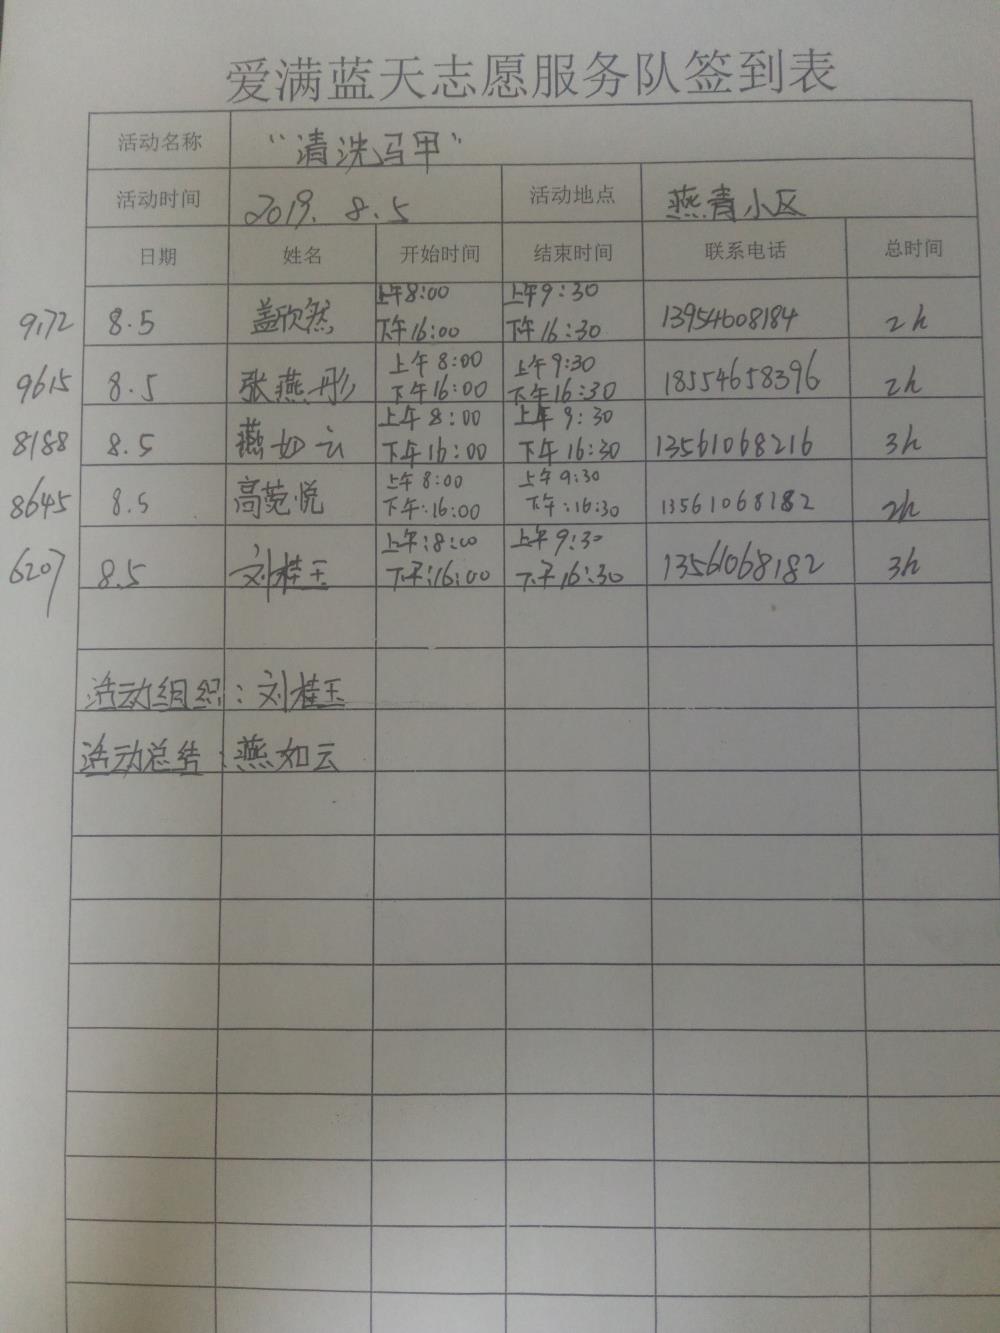 爱满蓝天志愿服务队签到表
活动名称 "清洗马甲"
活动时间 2019.8.5 活动地点 燕青小区
日期 姓名 开始时间 结束时间 联系电话 总时间
9172 8.5 盖欣然 上午8:00 下午16:00 上午9:30 下午16:30 13954608184 2h
9615 8.5 张燕彤 上午8:00 下午16:00 上午9:30 下午16:30 18554658396 2h
8188 8.5 燕如云 上午8:00 下午16:00 上午9:30 下午16:30 13561068216 3h
8645 8.5 高菀悦 上午8:00 下午:16:00 上午9:30 下午:16:30 13561068182 2h
6207 8.5 刘桂玉 上午:8:00 下午:16:00 上午9:30 下午16:30 13561068182 3h
活动组织:刘桂玉
活动总结:燕如云